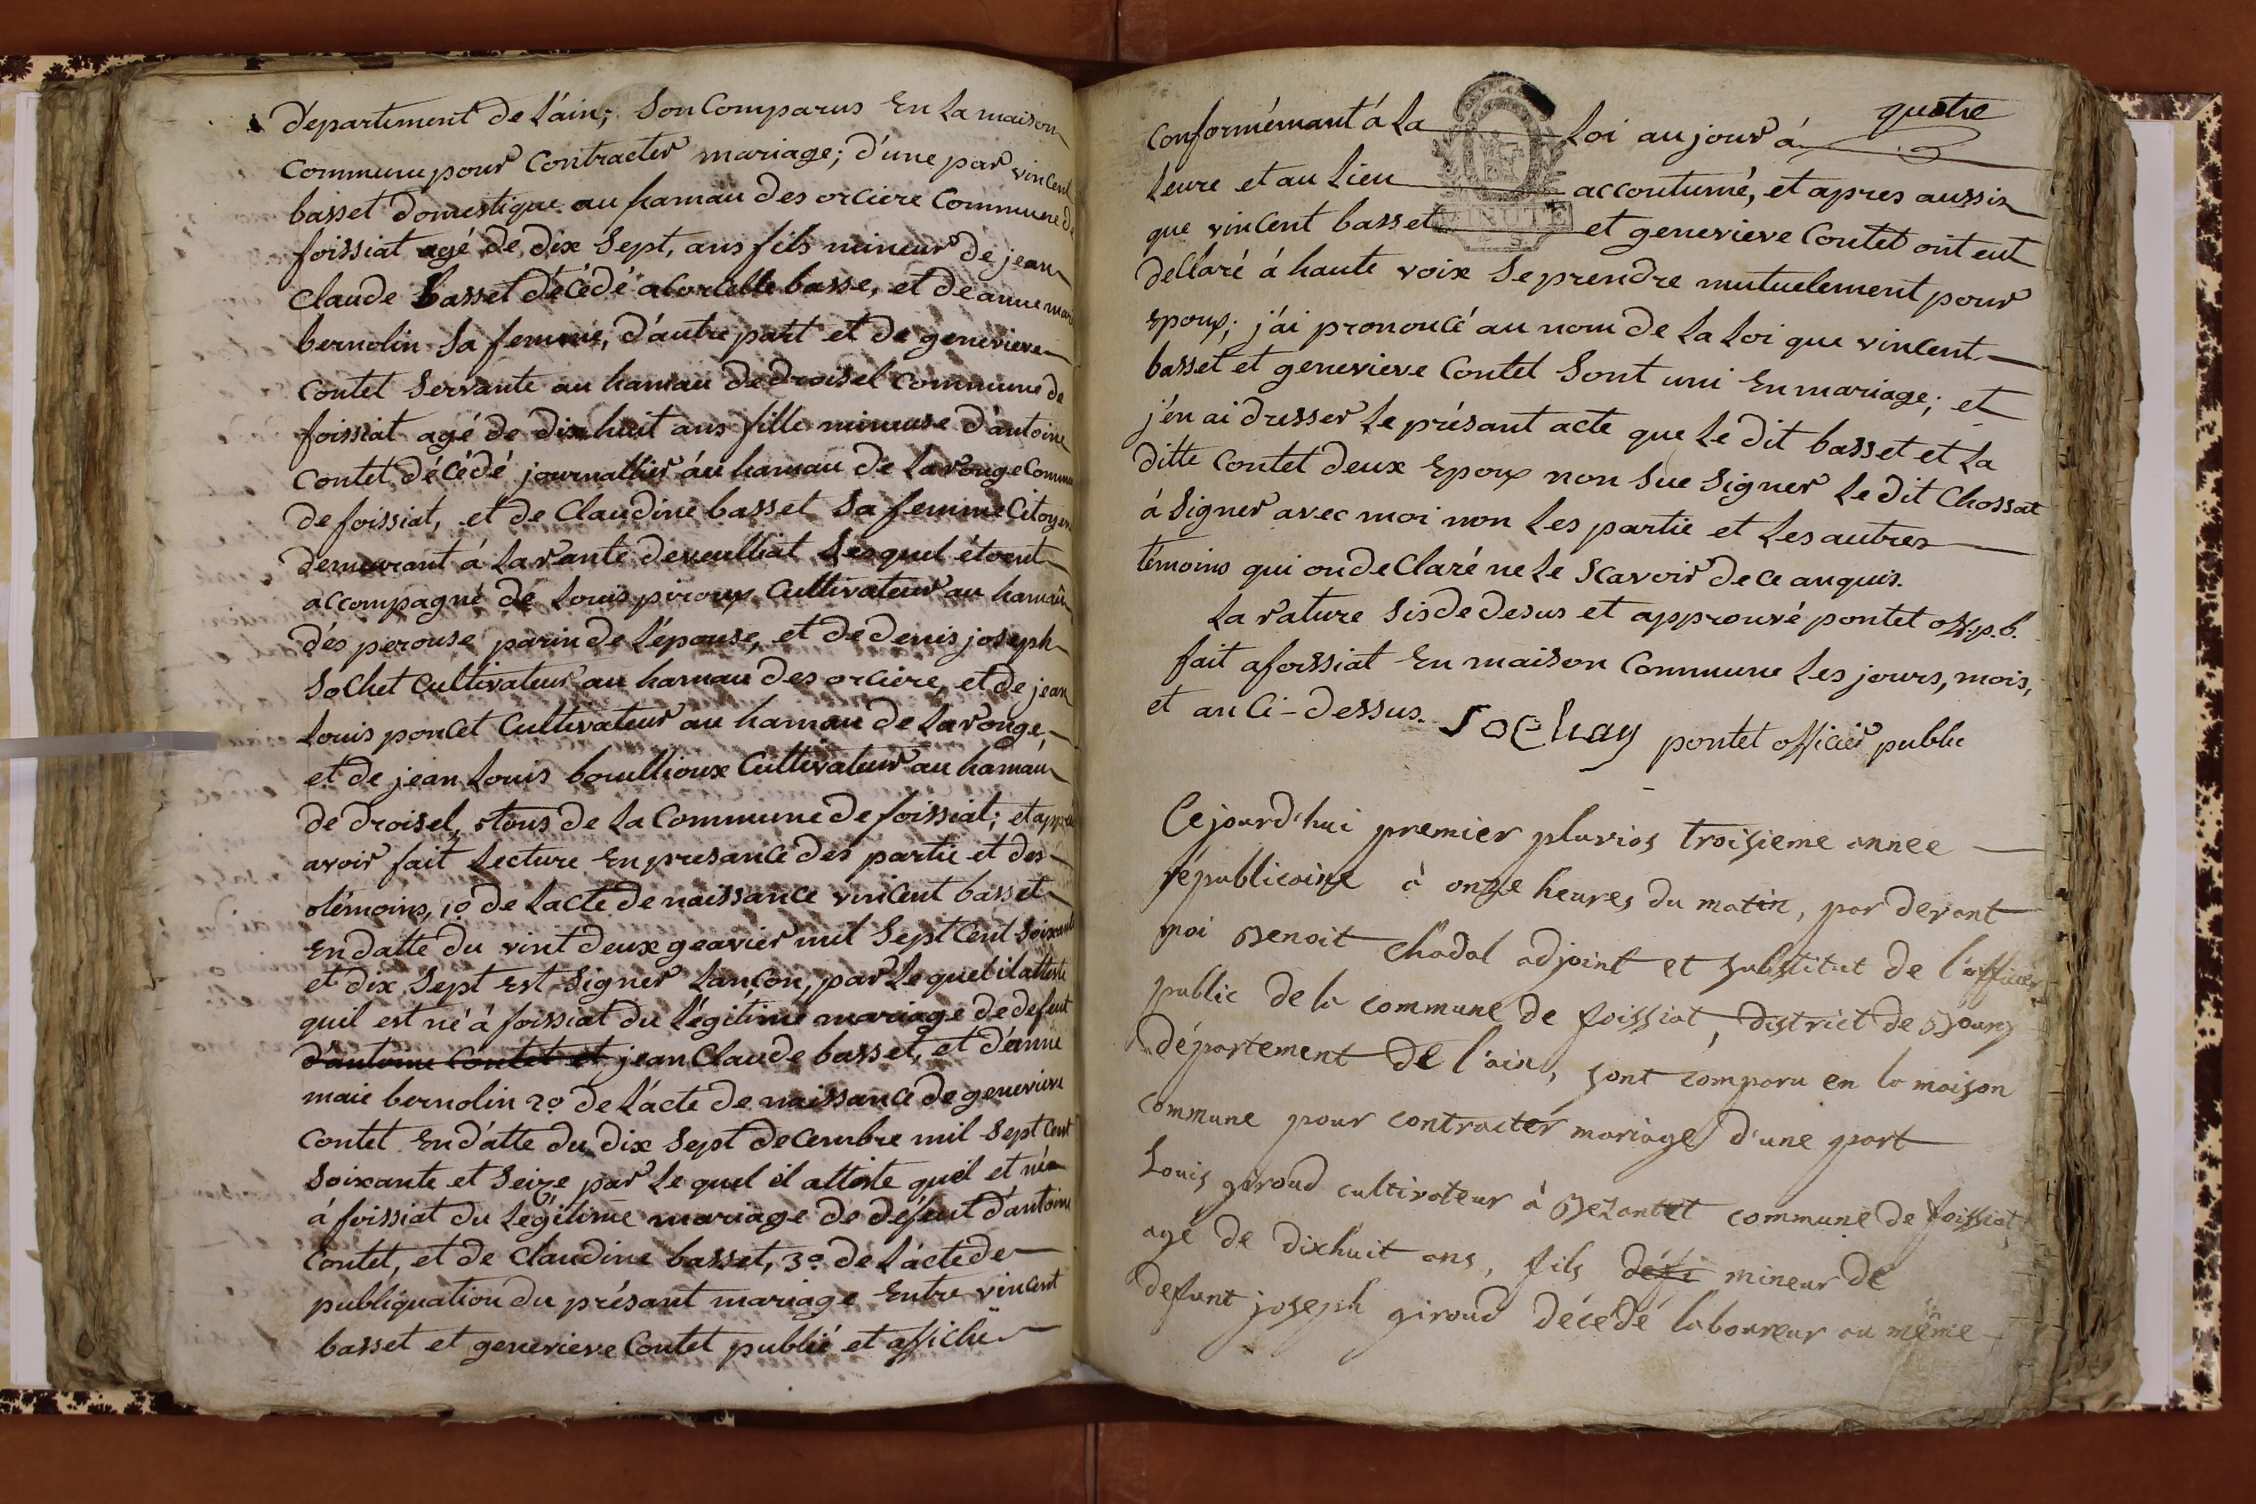 département de L'ain; Son Comparus En La maison
Commune pour Contracter mariage; d'une par vincent
basset domestique au hamau des orciere Commune de
foissiat agé de dix Sept, ans fils mineur de jean
Claude basset décédé a Corcelle basse, et de anne mari
bernolin Sa femme; d'autre part et de genevieve
Contet Servante au hamau de droisel Commune de
foissiat agé de dix huit ans fille mineuse d'antoine
Contet décédé journallier áu hamau de Laronge Commu
de foissiat, et de Claudine basset Sa femme Citoyen
demeurant á Lavante Lesquel étoent
accompagné de Louis piroux Cultivateur au hamau
dés perouse parin de L'épouse, et de denis joseph
Sochet Cultivateur au hamau des orciere, et de jean
Louis poncet Cultivateur au hamau de Laronge,
et de jean Louis bouillioux Cultivateur au hamau
de droisel, tous de La Commune de foissiat; et apprè
avoir fait Lecture En presance des partie et des
témoins, 1º de Lacte de naissance vincent basset
En datte du vint deux geavier mil Sept Cent Soixante
et dix Sept Est Signer Lançon, par Le quel il atteste
quil est né á foissiat du Légitime mariage de defeut
d'antoine Contet et jean Claude basset, et d'anne
maie bernolin 2º de L'acte de naissance de genevieve
Contet En datte du dix Sept decembre mil Sept Cent
Soixante et Seize par Le quel il atteste quél et née
á foissiat du Legitime mariage de défeut d'antoine
Contet, et de Claudine basset, 3º de L'acte de
publiquation du présant mariage Entre vincent
basset et genevieve Contet publié et affiché
Conformémant á La Loi au jour á quatre
Leure et au Lieu accoutumé, et apres aussis
que vincent basset et genevieve Contet ont eut
declaré á haute voix Se prendre mutuelement pour
Epoux; j'ai prononcé au nom de La Loi que vincent
basset et genevieve Contet Sont uni En mariage; et
j'én ai dresser Le présant acte que Le dit basset et La
ditte Contet deux Epoux non Sue Signer Le dit Chossat
á Signer avec moi non Les partie et Les autres
témoins qui on declaré ne Le Scavoir de ce anquis.
La rature Sis de desus et approuvé pontet off. p. b.
fait a foissiat En maison Commune Les jours, mois,
et an Ci-dessus. Sochay pontet officier public
Cejourd'hui premier pluvios troisieme annee
républicaine à onze heures du matin, par devant
moi Benoit Chadal adjoint et substitut de l'officier
public de la commune de foissiat, district de Bourg
département de l'ain, sont comparu en la maison
commune pour contracter mariage d'une part
Louis giroud cultivateur à Bezantet commune de foissiat
agé de dixhuit ans, fils défi mineur de
defunt joseph giroud décedé laboureur au même